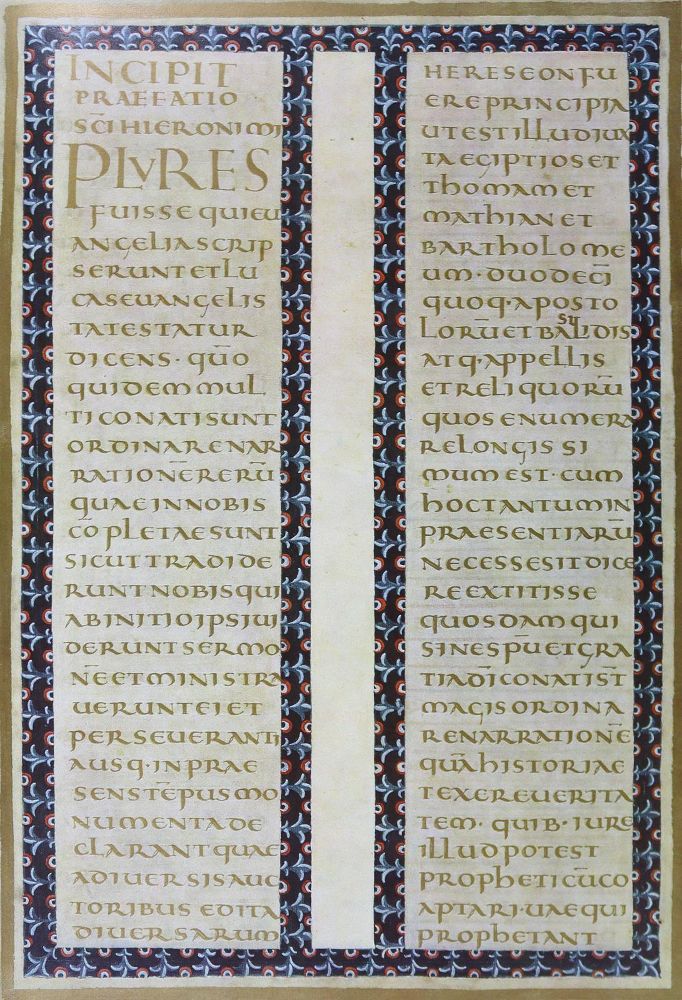 INCIPIT
PRAEFATIO
SC̄I HIERONIMI
PLVRES
FUISSE QUI EU
ANGELIA SCRIP
SERUNT ET LU
CAS EUANGELIS
TA TESTATUR
DICENS · QUŌ
QUIDEM MUL
TI CONATI SUNT
ORDINARE NAR
RATIONĒ RERŪ
QUAE IN NOBIS
CŌPLETAE SUNT
SICUT TRADIDE
RUNT NOBIS QUI
AB INITIO IPSI UI
DERUNT SERMO
NĒ ET MINISTRA
UERUNT EI ET
PERSEUERANTI
A USQ · IN PRAE
SENS TĒPUS MO
NUMENTA DE
CLARANT QUAE
A DIUERSIS AUC
TORIBUS EDITA
DIUERSARUM
HERESEON FU
ERE PRINCIPIA
UT EST ILLUD IUX
TA EGIPTIOS ET
THOMAM ET
MATHIAN ET
BARTHOLOME
UM · DUODECĪ
QUOQ · APOSTO
LORŪ ET BASILIDIS
ATQ · APPELLIS
ET RELIQUORŪ
QUOS ENUMERA
RE LONGISSI
MUM EST · CUM
HOC TANTUM IN
PRAESENTIARŪ
NECESSE SIT DICE
RE EXTITISSE
QUOSDAM QUI
SINE SPŪ ET GRA
TIA DĪ CONATI ST̄
MAGIS ORDINA
RE NARRATIONĒ
QUĀ HISTORIAE
TEXERE UERITA
TEM · QUIB · IURE
ILLUD POTEST
PROPHETICŪ CO
APTARI · UAE QUI
PROPHETANT